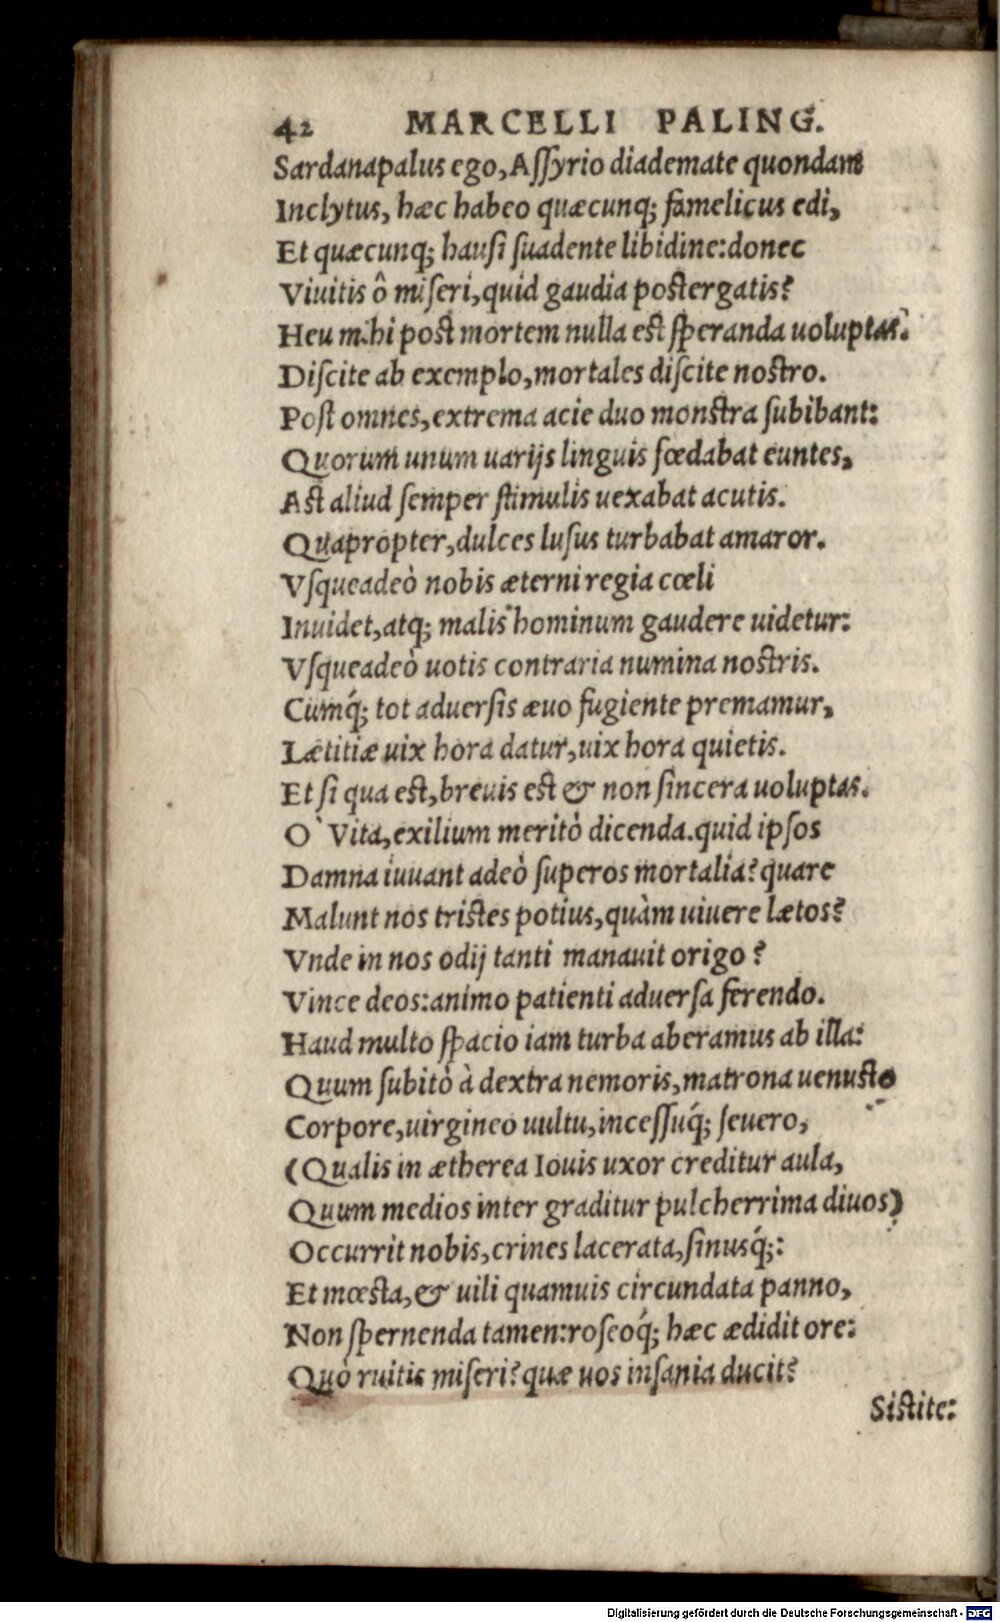 42 MARCELLI PALING.
Sardanapalus ego, Aſſyrio diademate quondam
Inclytus, hæc habeo quæcunq; famelicus edi,
Et quæcunq; hauſi ſuadente libidine: donec
Viuitis ô miſeri, quid gaudia postergatis?
Heu mihi post mortem nulla est ſperanda uoluptas.
Diſcite ab exemplo, mortales diſcite nostro.
Poſt omnes, extrema acie duo monstra ſubibant:
Quorum unum uarijs linguis fœdabat euntes,
Ast aliud ſemper ſtimulis uexabat acutis.
Quapropter, dulces luſus turbabat amaror.
Vſqueadeò nobis æterni regia cœli
Inuidet, atq; malis hominum gaudere uidetur:
Vſqueadeò uotis contraria numina nostris.
Cúmq́; tot aduerſis æuo fugiente premamur,
Lætitiæ uix hora datur, uix hora quietis.
Et ſi qua est, breuis est & non ſincera uoluptas.
O` Vita, exilium meritò dicenda. quid ipſos
Damna iuuant adeò ſuperos mortalia? quare
Malunt nos tristes potius, quàm uiuere lætos?
Vnde in nos odij tanti manauit origo?
Vince deos: animo patienti aduerſa ferendo.
Haud multo ſpacio iam turba aberamus ab illa:
Quum ſubitò à dextra nemoris, matrona uenusto
Corpore, uirgineo uultu, inceſſuq́; ſeuero,
(Qualis in ætherea Iouis uxor creditur aula,
Quum medios inter graditur pulcherrima diuos)
Occurrit nobis, crines lacerata, ſinusq́;:
Et mœsta, & uili quamuis circundata panno,
Non ſpernenda tamen: roſeoq́; hæc ædidit ore:
Quò ruitis miſeri? quæ uos inſania ducit?
Sistite:
Digitalisierung gefördert durch die Deutsche Forschungsgemeinschaft - DFG